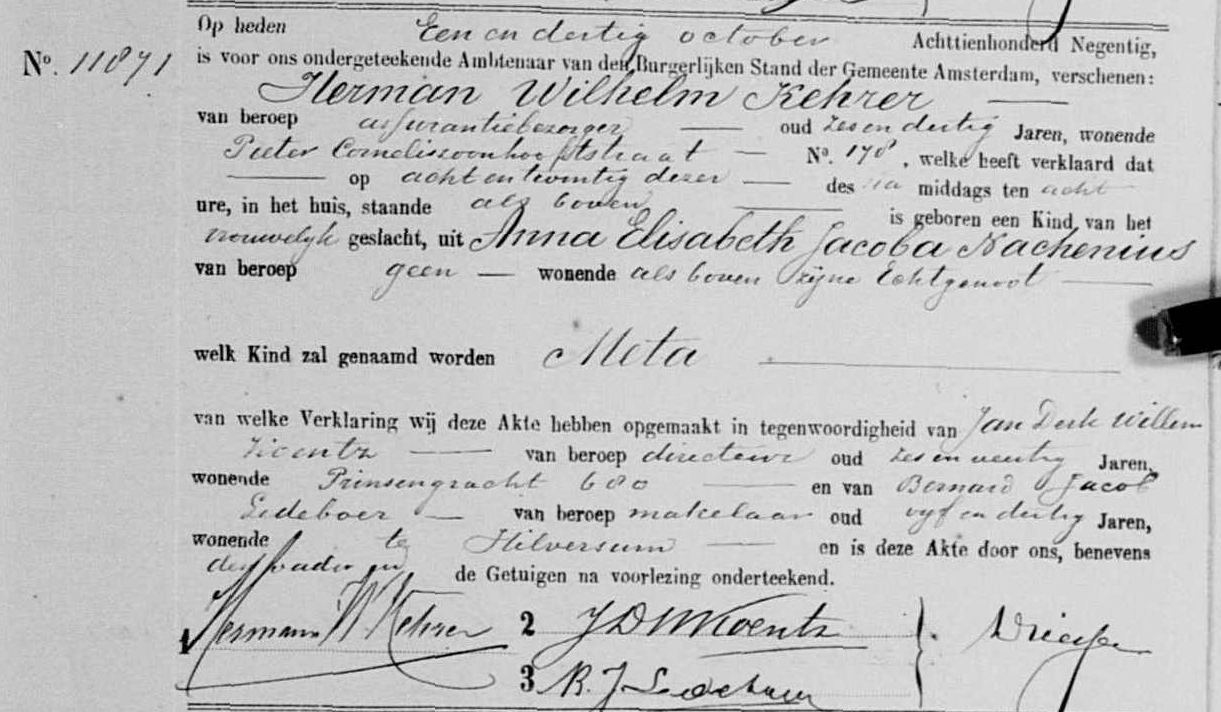 Op heden Een en dertig october Achttienhonderd Negentig,
No. 11871 is voor ons ondergeteekende Ambtenaar van den Burgerlijken Stand der Gemeente Amsterdam, verschenen:
Herman Wilhelm Kehrer
van beroep assurantiebezorger oud zes en dertig Jaren, wonende
Pieter Corneliszoonhooftstraat No. 178, welke heeft verklaard dat
op acht en twintig dezer des na middags ten acht
ure, in het huis, staande als boven is geboren een Kind van het
vrouwelijk geslacht, uit Anna Elisabeth Jacoba Nachenius
van beroep geen wonende als boven zijne Echtgenoot
welk Kind zal genaamd worden Meta
van welke Verklaring wij deze Akte hebben opgemaakt in tegenwoordigheid van Jan Derk Willem
van beroep directeur oud zes en veertig Jaren,
wonende Prinsengracht 680 en van Bernard Jacob
Ledeboer van beroep makelaar oud vijf en dertig Jaren,
wonende te Hilversum en is deze Akte door ons, benevens
den vader en de Getuigen na voorlezing onderteekend.
1 Herman W Kehrer 2 J D W
3 B. J. Ledeboer